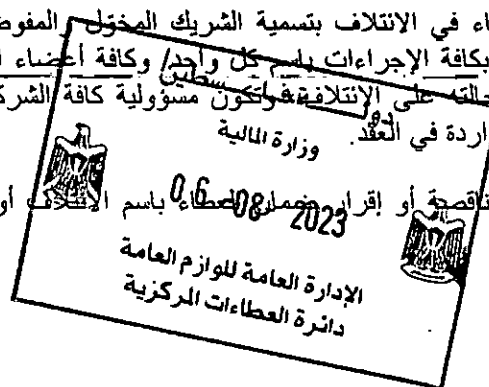 اء في الائتلاف بتسمية الشريك المخوّل والمفوض
بكافة الإجراءات باسم كل واحد/ وكافة أعضاء ا
حالته على الائتلاف، وتكون مسؤولية كافة الشرك
اردة في العقد.
ناقصة أو إقرار ضمان العطاء باسم الائتلاف أو
دولة فلسطين
وزارة المالية
06 -08- 2023
الإدارة العامة للوازم العامة
دائرة العطاءات المركزية